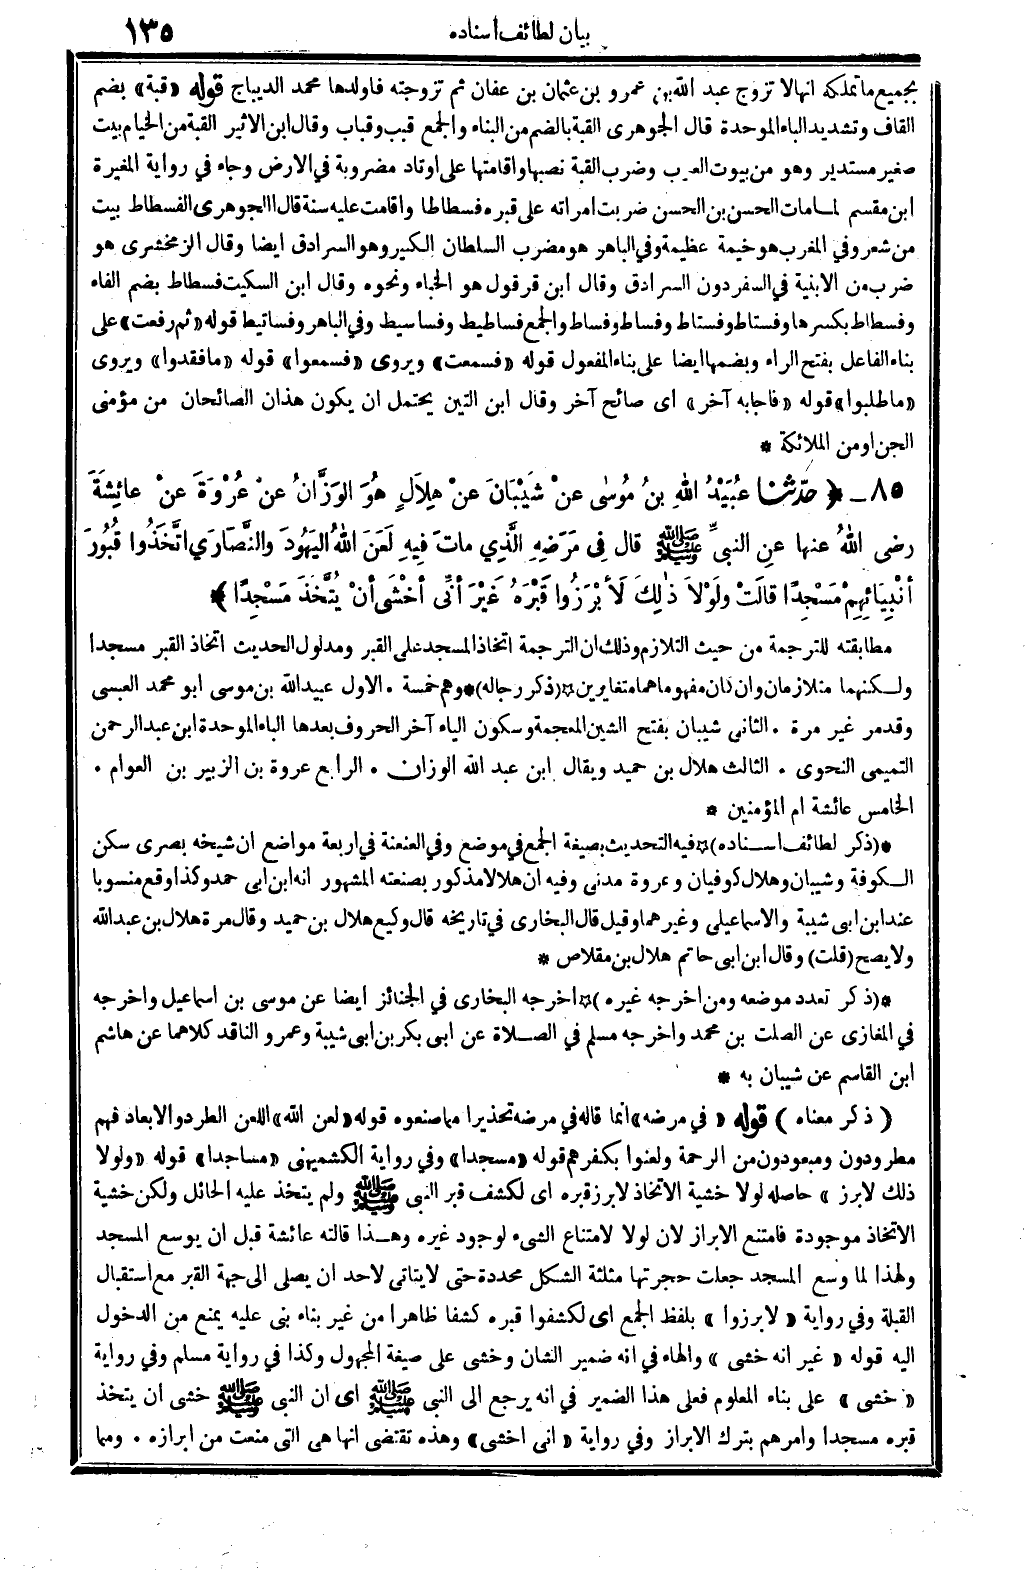 بيان لطائف اسناده ١٣٥
بجميع ماتملكه انها لا تزوج عبد الله بن عمرو بن عثمان بن عفان ثم تزوجته فاولدها محمد الديباج قوله «قبة» بضم
القاف وتشديد الباء الموحدة قال الجوهرى القبة بالضم من البناء والجمع قبب وقباب وقال ابن الاثير القبة من الخيام بيت
صغير مستدير وهو من بيوت العرب وضرب القبة نصبها واقامتها على اوتاد مضروبة في الارض وجاء في رواية المغيرة
ابن مقسم لما مات الحسن بن الحسن ضربت امراته على قبره فسطاطا واقامت عليه سنة قال الجوهرى الفسطاط بيت
من شعر وفي المغرب هو خيمة عظيمة وفي الباهر هو مضرب السلطان الكبير وهو السرادق ايضا وقال الزمخشرى هو
ضرب من الابنية في السفر دون السرادق وقال ابن قرقول هو الخباء ونحوه وقال ابن السكيت فسطاط بضم الفاء
وفسطاط بكسرها وفستاط وفستاط وفساط وفساط والجمع فساطيط وفساسيط وفي الباهر وفساتيط قوله «ثم رفعت» على
بناء الفاعل بفتح الراء وبضمها ايضا على بناء المفعول قوله «فسمعت» ويروى «فسمعوا» قوله «مافقدوا» ويروى
«ماطلبوا» قوله «فاجابه آخر» اى صائح آخر وقال ابن التين يحتمل ان يكون هذان الصائحان من مؤمنى
الجن او من الملائكة *
٨٥ - ﴿ حَدَّثَنا عُبَيْدُ اللهِ بنُ مُوسٰى عنْ شَيْبَانَ عنْ هِلاَلٍ هُوَ الوَزَّانُ عنْ عُرْوَةَ عنْ عائِشَةَ
رضى اللهُ عنها عنِ النبيِّ ﷺ قال فِى مَرَضِهِ الَّذِي ماتَ فِيهِ لَعَنَ اللهُ اليَهُودَ والنَّصَارَي اتَّخَذُوا قُبُورَ
أنْبِيَائِهِمْ مَسْجِدًا قالَتْ ولَوْلاَ ذٰلِكَ لَأ بْرَزُوا قَبْرَهُ غَيْرَ أنِّى أخْشٰى أنْ يُتَّخَذَ مَسْجِدًا ﴾ *
مطابقته للترجمة من حيث التلازم وذلك ان الترجمة اتخاذ المسجد على القبر ومدلول الحديث اتخاذ القبر مسجدا
ولكنهما متلازمان وان كان مفهوماهما متغايرين ☆ (ذكر رجاله) * وهم خمسة . الاول عبيدالله بن موسى ابو محمد العبسى
وقدمر غير مرة . الثانى شيبان بفتح الشين المعجمة وسكون الياء آخر الحروف بعدها الباء الموحدة ابن عبدالرحمن
التميمى النحوى . الثالث هلال بن حميد ويقال ابن عبد الله الوزان . الرابع عروة بن الزبير بن العوام .
الخامس عائشة ام المؤمنين *
* (ذكر لطائف اسناده) ☆ فيه التحديث بصيغة الجمع في موضع وفي العنعنة في اربعة مواضع ان شيخه بصرى سكن
الكوفة وشيبان وهلال كوفيان وعروة مدنى وفيه ان هلالا مذكور بصنعته المشهور انه ابن ابى حمد وكذا وقع منسوبا
عند ابن ابى شيبة والاسماعيلى وغيرهما وقيل قال البخارى في تاريخه قال وكيع هلال بن حميد وقال مرة هلال بن عبدالله
ولا يصح (قلت) وقال ابن ابى حاتم هلال بن مقلاص *
* (ذكر تعدد موضعه ومن اخرجه غيره) ☆ اخرجه البخارى في الجنائز ايضا عن موسى بن اسماعيل واخرجه
في المغازى عن الصلت بن محمد واخرجه مسلم في الصلاة عن ابى بكر بن ابى شيبة وعمرو الناقد كلاهما عن هاشم
ابن القاسم عن شيبان به *
( ذكر معناه ) قوله « في مرضه» انما قاله في مرضه تحذيرا مما صنعوه قوله «لعن الله» اللعن الطرد والابعاد فهم
مطرودون ومبعودون من الرحمة ولعنوا بكفرهم قوله «مسجدا» وفي رواية الكشميهنى «مساجدا» قوله «ولولا
ذلك لابرز » حاصله لولا خشية الاتخاذ لابرز قبره اى لكشف قبر النبى ﷺ ولم يتخذ عليه الحائل ولكن خشية
الاتخاذ موجودة فامتنع الابراز لان لولا لامتناع الشىء لوجود غيره وهذا قالته عائشة قبل ان يوسع المسجد
ولهذا لما وسع المسجد جعلت حجرتها مثلثة الشكل محددة حتى لا يتاتى لاحد ان يصلى الى جهة القبر مع استقبال
القبلة وفي رواية « لابرزوا » بلفظ الجمع اى لكشفوا قبره كشفا ظاهرا من غير بناء بنى عليه يمنع من الدخول
اليه قوله « غير انه خشى » والهاء في انه ضمير الشان وخشى على صيغة المجهول وكذا في رواية مسلم وفي رواية
« خشى » على بناء المعلوم فعلى هذا الضمير في انه يرجع الى النبى ﷺ اى ان النبى ﷺ خشى ان يتخذ
قبره مسجدا وامرهم بترك الابراز وفي رواية « انى اخشى» وهذه تقتضى انها هى التى منعت من ابرازه . ومما